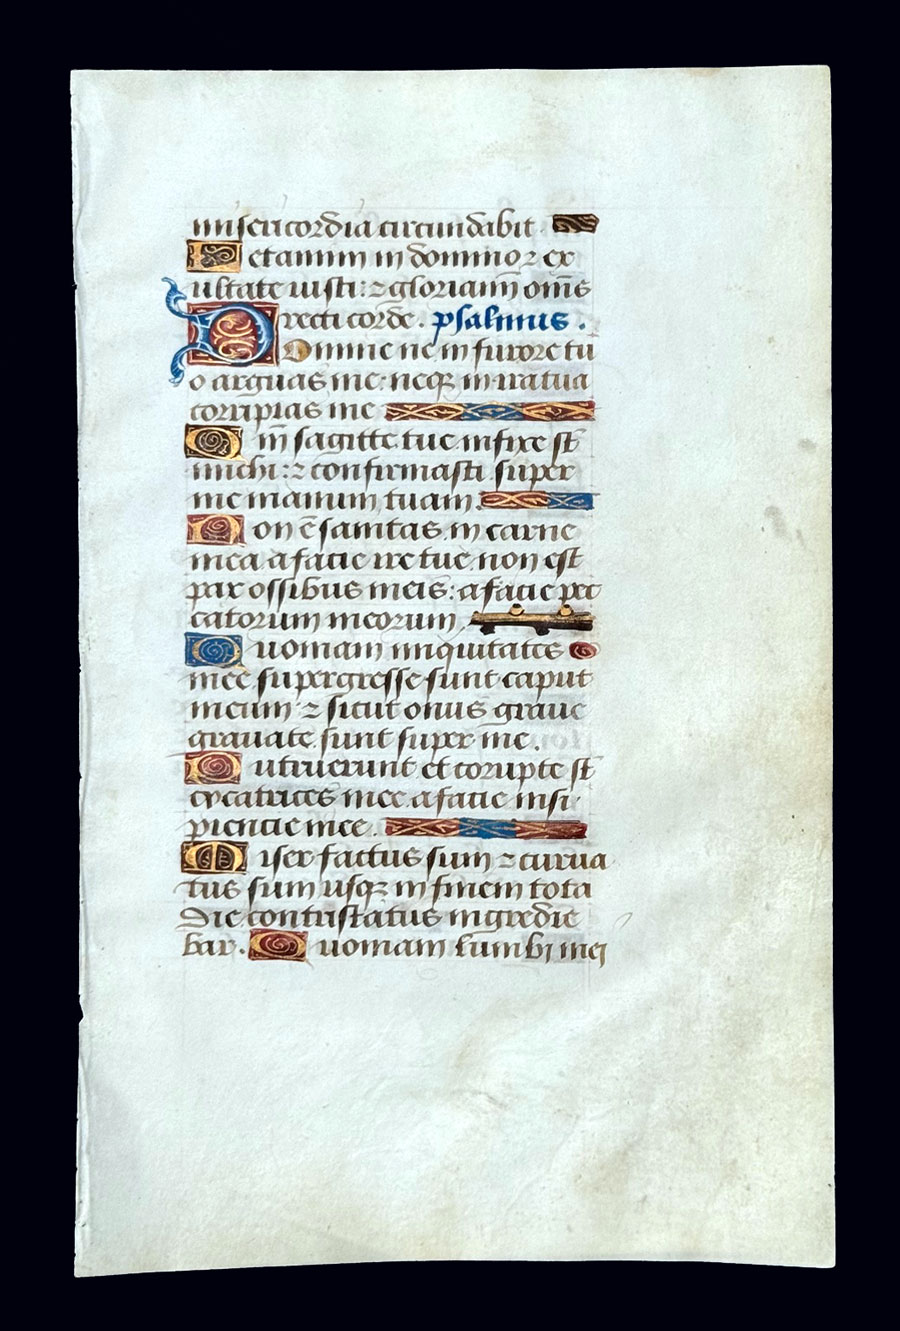 misericordia circundabit.
Letamini in domino ⁊ ex
ultate iusti: ⁊ gloriamĩ om̃s
recti corde. psalmus.
Domine ne in furore tu
o arguas me: neqꝫ in ira tua
corripias me
Qm̃ sagitte tue infixe st̃
michi: ⁊ confirmasti super
me manum tuam.
Non ẽ sanitas in carne
mea a facie ire tue non est
pax ossibus meis: a facie pec
catorum meorum.
Quoniam iniquitates
mee supergresse sunt caput
meum ⁊ sicut onus graue
grauate sunt super me.
Putruerunt et corupte st̃
cycatrices mee a facie insi
piencie mee.
Miser factus sum ⁊ curua
tus sum usqꝫ in finem tota
die contristatus ingredie
bar. Quoniam lumbi mei